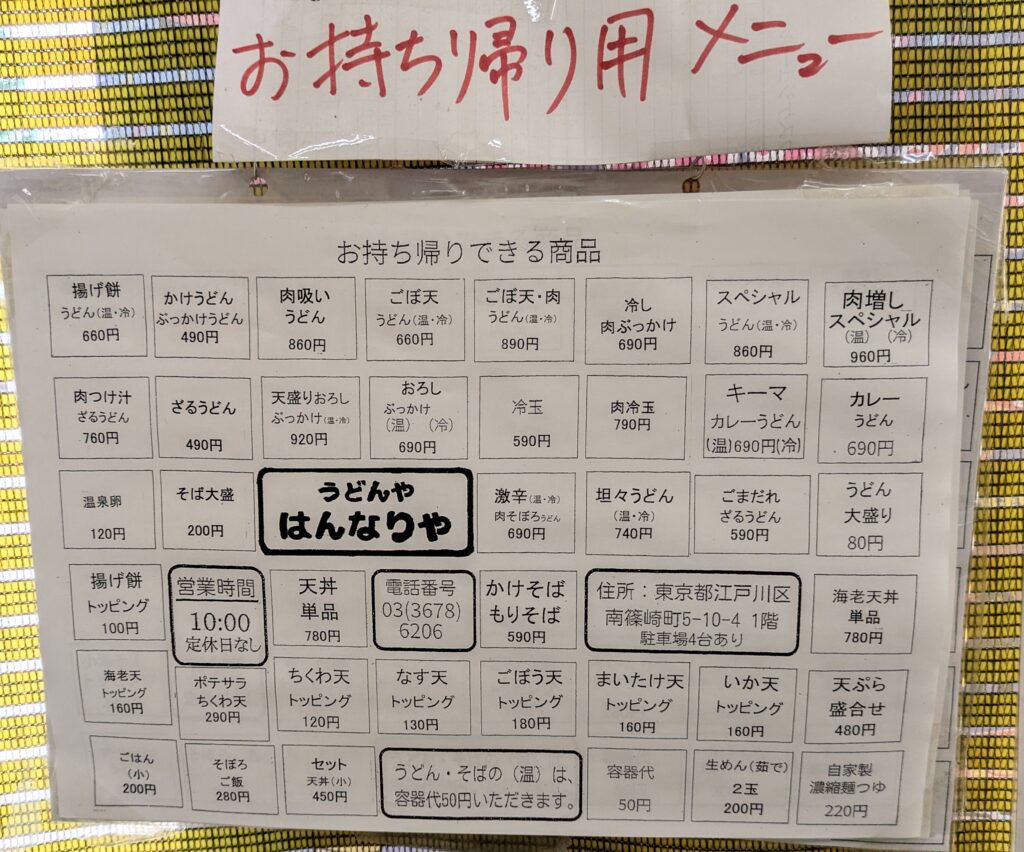 お持ち帰り用 メニュー
お持ち帰りできる商品
揚げ餅
うどん(温・冷)
660円
かけうどん
ぶっかけうどん
490円
肉吸い
うどん
860円
ごぼ天
うどん(温・冷)
660円
ごぼ天・肉
うどん(温・冷)
890円
冷し
肉ぶっかけ
690円
スペシャル
うどん(温・冷)
860円
肉増し
スペシャル
(温) (冷)
960円
肉つけ汁
ざるうどん
760円
ざるうどん
490円
天盛りおろし
ぶっかけ(温・冷)
920円
おろし
ぶっかけ
(温) (冷)
690円
冷玉
590円
肉冷玉
790円
キーマ
カレーうどん
(温)690円(冷)
カレー
うどん
690円
温泉卵
120円
そば大盛
200円
うどんや
はんなりや
激辛(温・冷)
肉そぼろうどん
690円
坦々うどん
(温・冷)
740円
ごまだれ
ざるうどん
590円
うどん
大盛り
80円
揚げ餅
トッピング
100円
営業時間
10:00
定休日なし
天丼
単品
780円
電話番号
03(3678)
6206
かけそば
もりそば
590円
住所:東京都江戸川区
南篠崎町5-10-4 1階
駐車場4台あり
海老天丼
単品
780円
海老天
トッピング
160円
ポテサラ
ちくわ天
290円
ちくわ天
トッピング
120円
なす天
トッピング
130円
ごぼう天
トッピング
180円
まいたけ天
トッピング
160円
いか天
トッピング
160円
天ぷら
盛合せ
480円
ごはん
(小)
200円
そぼろ
ご飯
280円
セット
天丼(小)
450円
うどん・そばの(温)は、
容器代50円いただきます。
容器代
50円
生めん(茹で)
2玉
200円
自家製
濃縮麺つゆ
220円